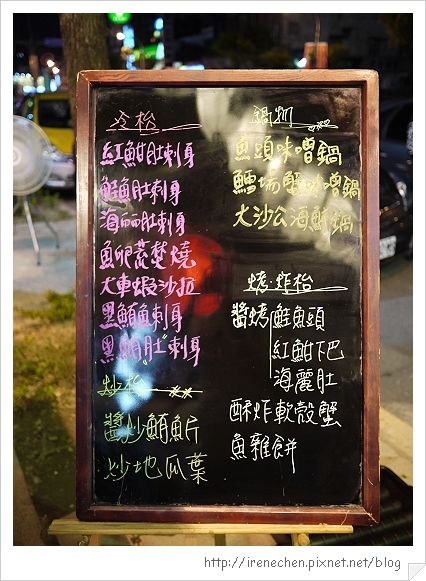 冷枱
紅魽肚刺身
鮭魚肚刺身
海鱺肚刺身
魚卵蔥焚燒
大車蝦沙拉
黑鮪魚刺身
黑鮪"肚"刺身
炒枱
醬炒鮪魚片
炒地瓜葉
鍋物
魚頭味噌鍋
鱈場蟹味噌鍋
大沙公海鮮鍋
烤.炸枱
醬烤鮭魚頭
紅魽下巴
海麗肚
酥炸軟殼蟹
魚雜餅
http://irenechen.pixnet.net/blog